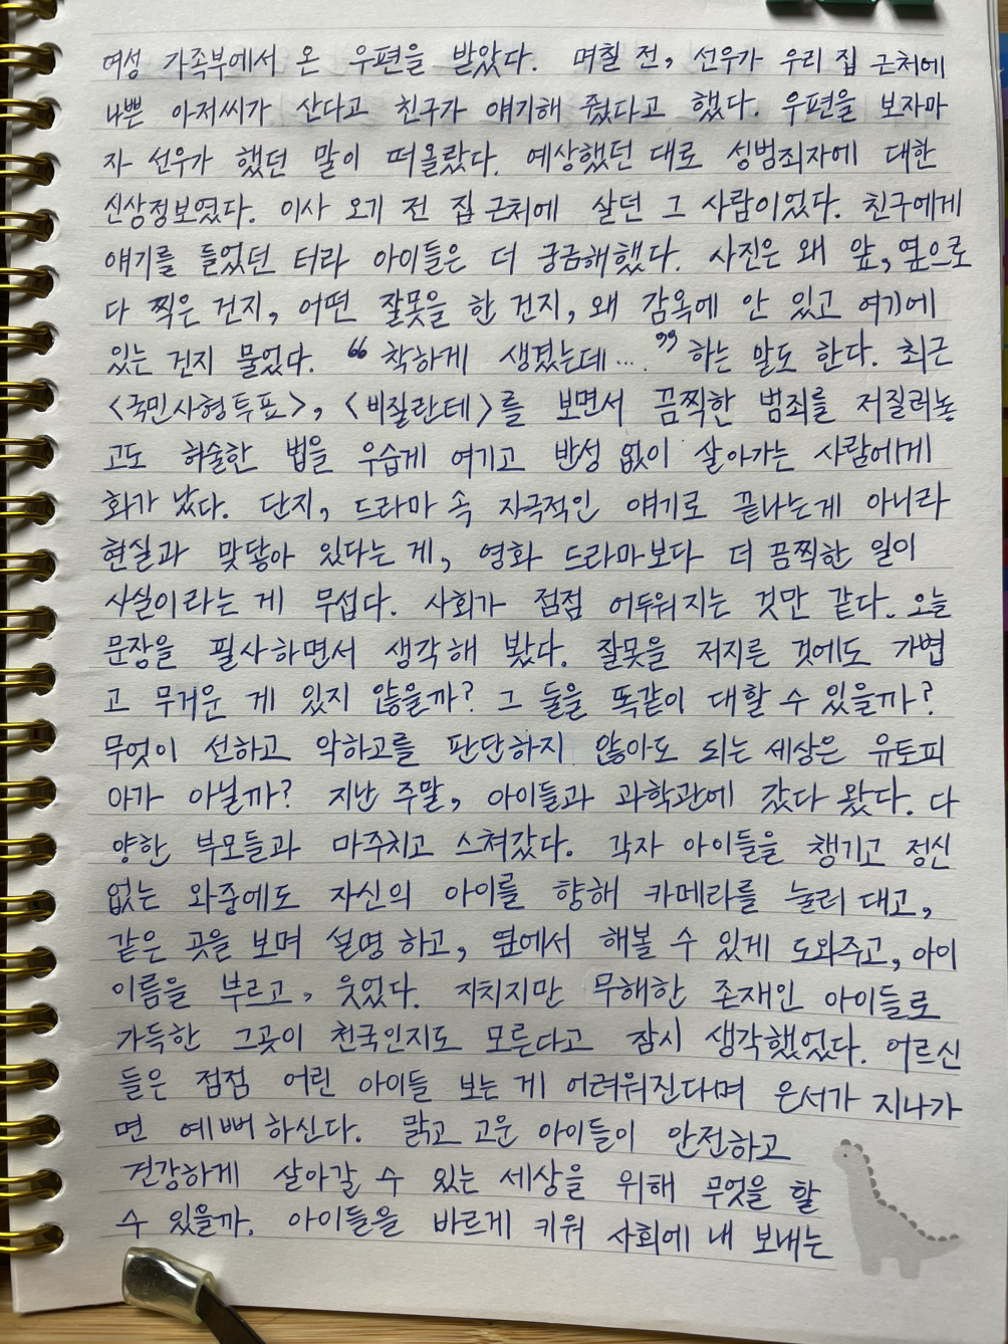 여성 가족부에서 온 우편을 받았다. 며칠 전, 선우가 우리 집 근처에
나쁜 아저씨가 산다고 친구가 얘기해 줬다고 했다. 우편을 보자마
자 선우가 했던 말이 떠올랐다. 예상했던 대로 성범죄자에 대한
신상정보였다. 이사 오기 전 집 근처에 살던 그 사람이었다. 친구에게
얘기를 들었던 터라 아이들은 더 궁금해했다. 사진은 왜 앞, 옆으로
다 찍은 건지, 어떤 잘못을 한 건지, 왜 감옥에 안 있고 여기에
있는 건지 물었다. “착하게 생겼는데... ” 하는 말도 한다. 최근
<국민사형투표>, <비질란테>를 보면서 끔찍한 범죄를 저질러놓
고도 허술한 법을 우습게 여기고 반성 없이 살아가는 사람에게
화가 났다. 단지, 드라마 속 자극적인 얘기로 끝나는게 아니라
현실과 맞닿아 있다는 게, 영화 드라마보다 더 끔찍한 일이
사실이라는 게 무섭다. 사회가 점점 어두워지는 것만 같다. 오늘
문장을 필사하면서 생각해 봤다. 잘못을 저지른 것에도 가볍
고 무거운 게 있지 않을까? 그 둘을 똑같이 대할 수 있을까?
무엇이 선하고 악하고를 판단하지 않아도 되는 세상은 유토피
아가 아닐까? 지난 주말, 아이들과 과학관에 갔다 왔다. 다
양한 부모들과 마주치고 스쳐갔다. 각자 아이들을 챙기고 정신
없는 와중에도 자신의 아이를 향해 카메라를 눌러 대고,
같은 곳을 보며 설명 하고, 옆에서 해볼 수 있게 도와주고, 아이
이름을 부르고, 웃었다. 지치지만 무해한 존재인 아이들로
가득한 그곳이 천국인지도 모른다고 잠시 생각했었다. 어르신
들은 점점 어린 아이들 보는 게 어려워진다며 은서가 지나가
면 예뻐하신다. 맑고 고운 아이들이 안전하고
건강하게 살아갈 수 있는 세상을 위해 무엇을 할
수 있을까. 아이들을 바르게 키워 사회에 내 보내는